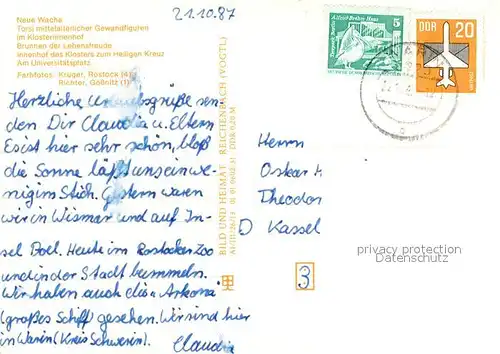 21.10.87
Neue Wache
Torsi mittelalterlicher Gewandfiguren
im Klosterinnenhof
Brunnen der Lebensfreude
Innenhof des Klosters zum Heiligen Kreuz
Am Universitätsplatz
Farbfotos: Krüger, Rostock (4)
Richter, Gößnitz (1)
Herzliche Urlaubsgrüße sen-
den Dir Claudia u. Eltern
Es ist hier sehr schön, bloß
die Sonne läßt uns ein we-
nig im Stich. Gestern waren
wir in Wismar und auf In-
sel Poel. Heute im Rostocker Zoo
und in der Stadt bummeln.
Wir haben auch die "Arkona"
(großes Schiff) gesehen. Wir sind hier
in Warin (Kreis Schwerin).
Claudia
BILD UND HEIMAT REICHENBACH (VOGTL)
5
Alfred-Brehm-Haus
Tierpark Berlin
DDR 20
Herrn
Oskar H
Theodor
D Kassel
3
privacy protection
Datenschutz